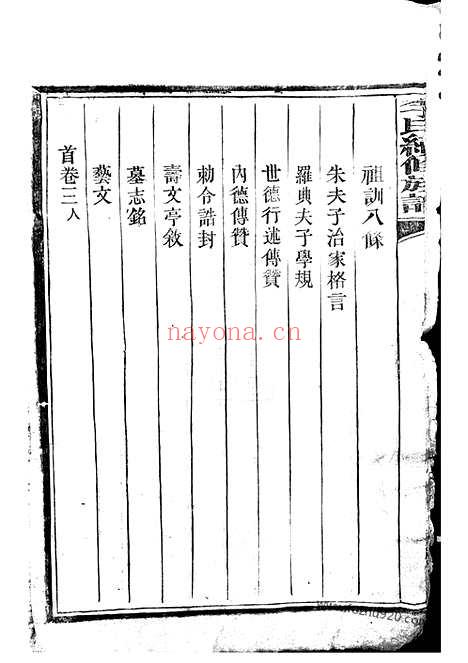 氏續修族譜
祖訓八條
朱夫子治家格言
羅典夫子學規
世德行述傳贊
內德傳贊
勅令誥封
壽文亭敘
墓志銘
藝文
首卷三人
nayona.cn